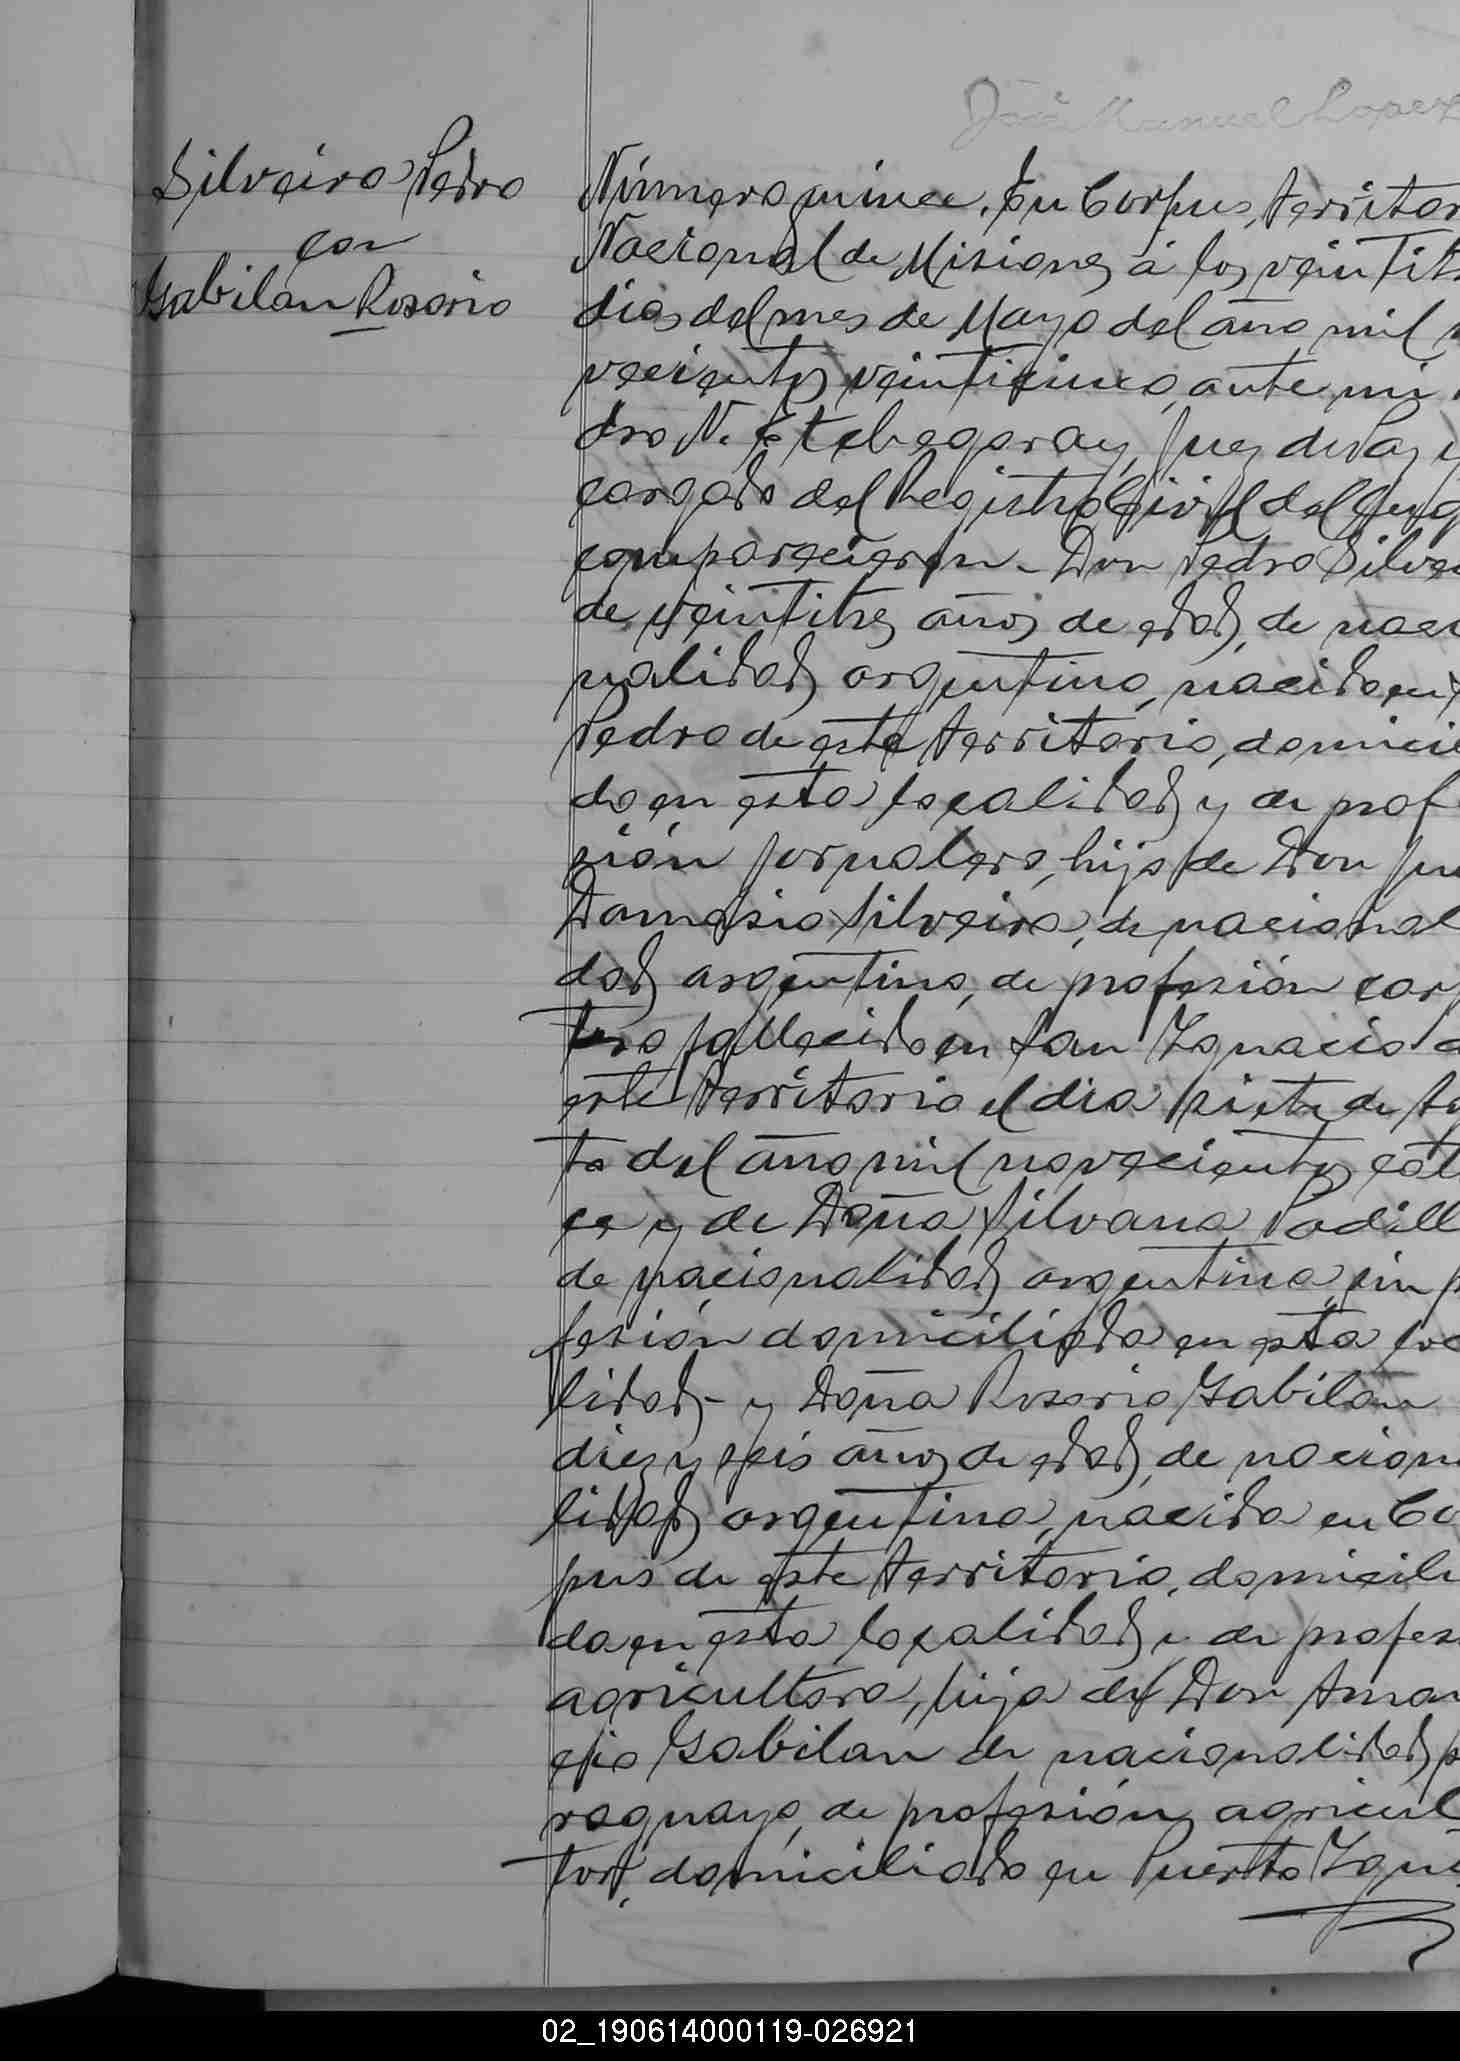 José Manuel Lopez
Silveira Pedro
con
Gabilan Rosario
Número quince. En Corpus, territor
Nacional de Misiones á los veintitr
dias del mes de Mayo del año mil n
vecientos veinticinco, ante mi
dro N. Etchegaray, Juez de Paz y
cargado del Registro Civil del lug
comparecieron - Don Pedro Silvei
de veintitres años de edad, de naci
nalidad argentino, nacido en
Pedro de este territorio, domicili
do en esta localidad y de prof
sión jornalero, hijo de Don Ju
Damasio Silveira, de nacional
dad argentino, de profesión carp
tero fallecido en San Ignacio d
este territorio el dia siete de Ag
to del año mil novecientos cat
ce y de Doña Silvana Padill
de nacionalidad argentina, sin p
fesión domiciliada en esta loc
lidad - y Doña Rosario Gabilán
diez y seis años de edad, de nacion
lidad argentina, nacida en Co
pus de este territorio, domicili
da en esta localidad y de profes
agricultora, hija de Don Ama
cio Gabilan de nacionalidad p
raguayo, de profesión agricul
tor, domiciliado en Puerto Igua
02_190614000119-026921